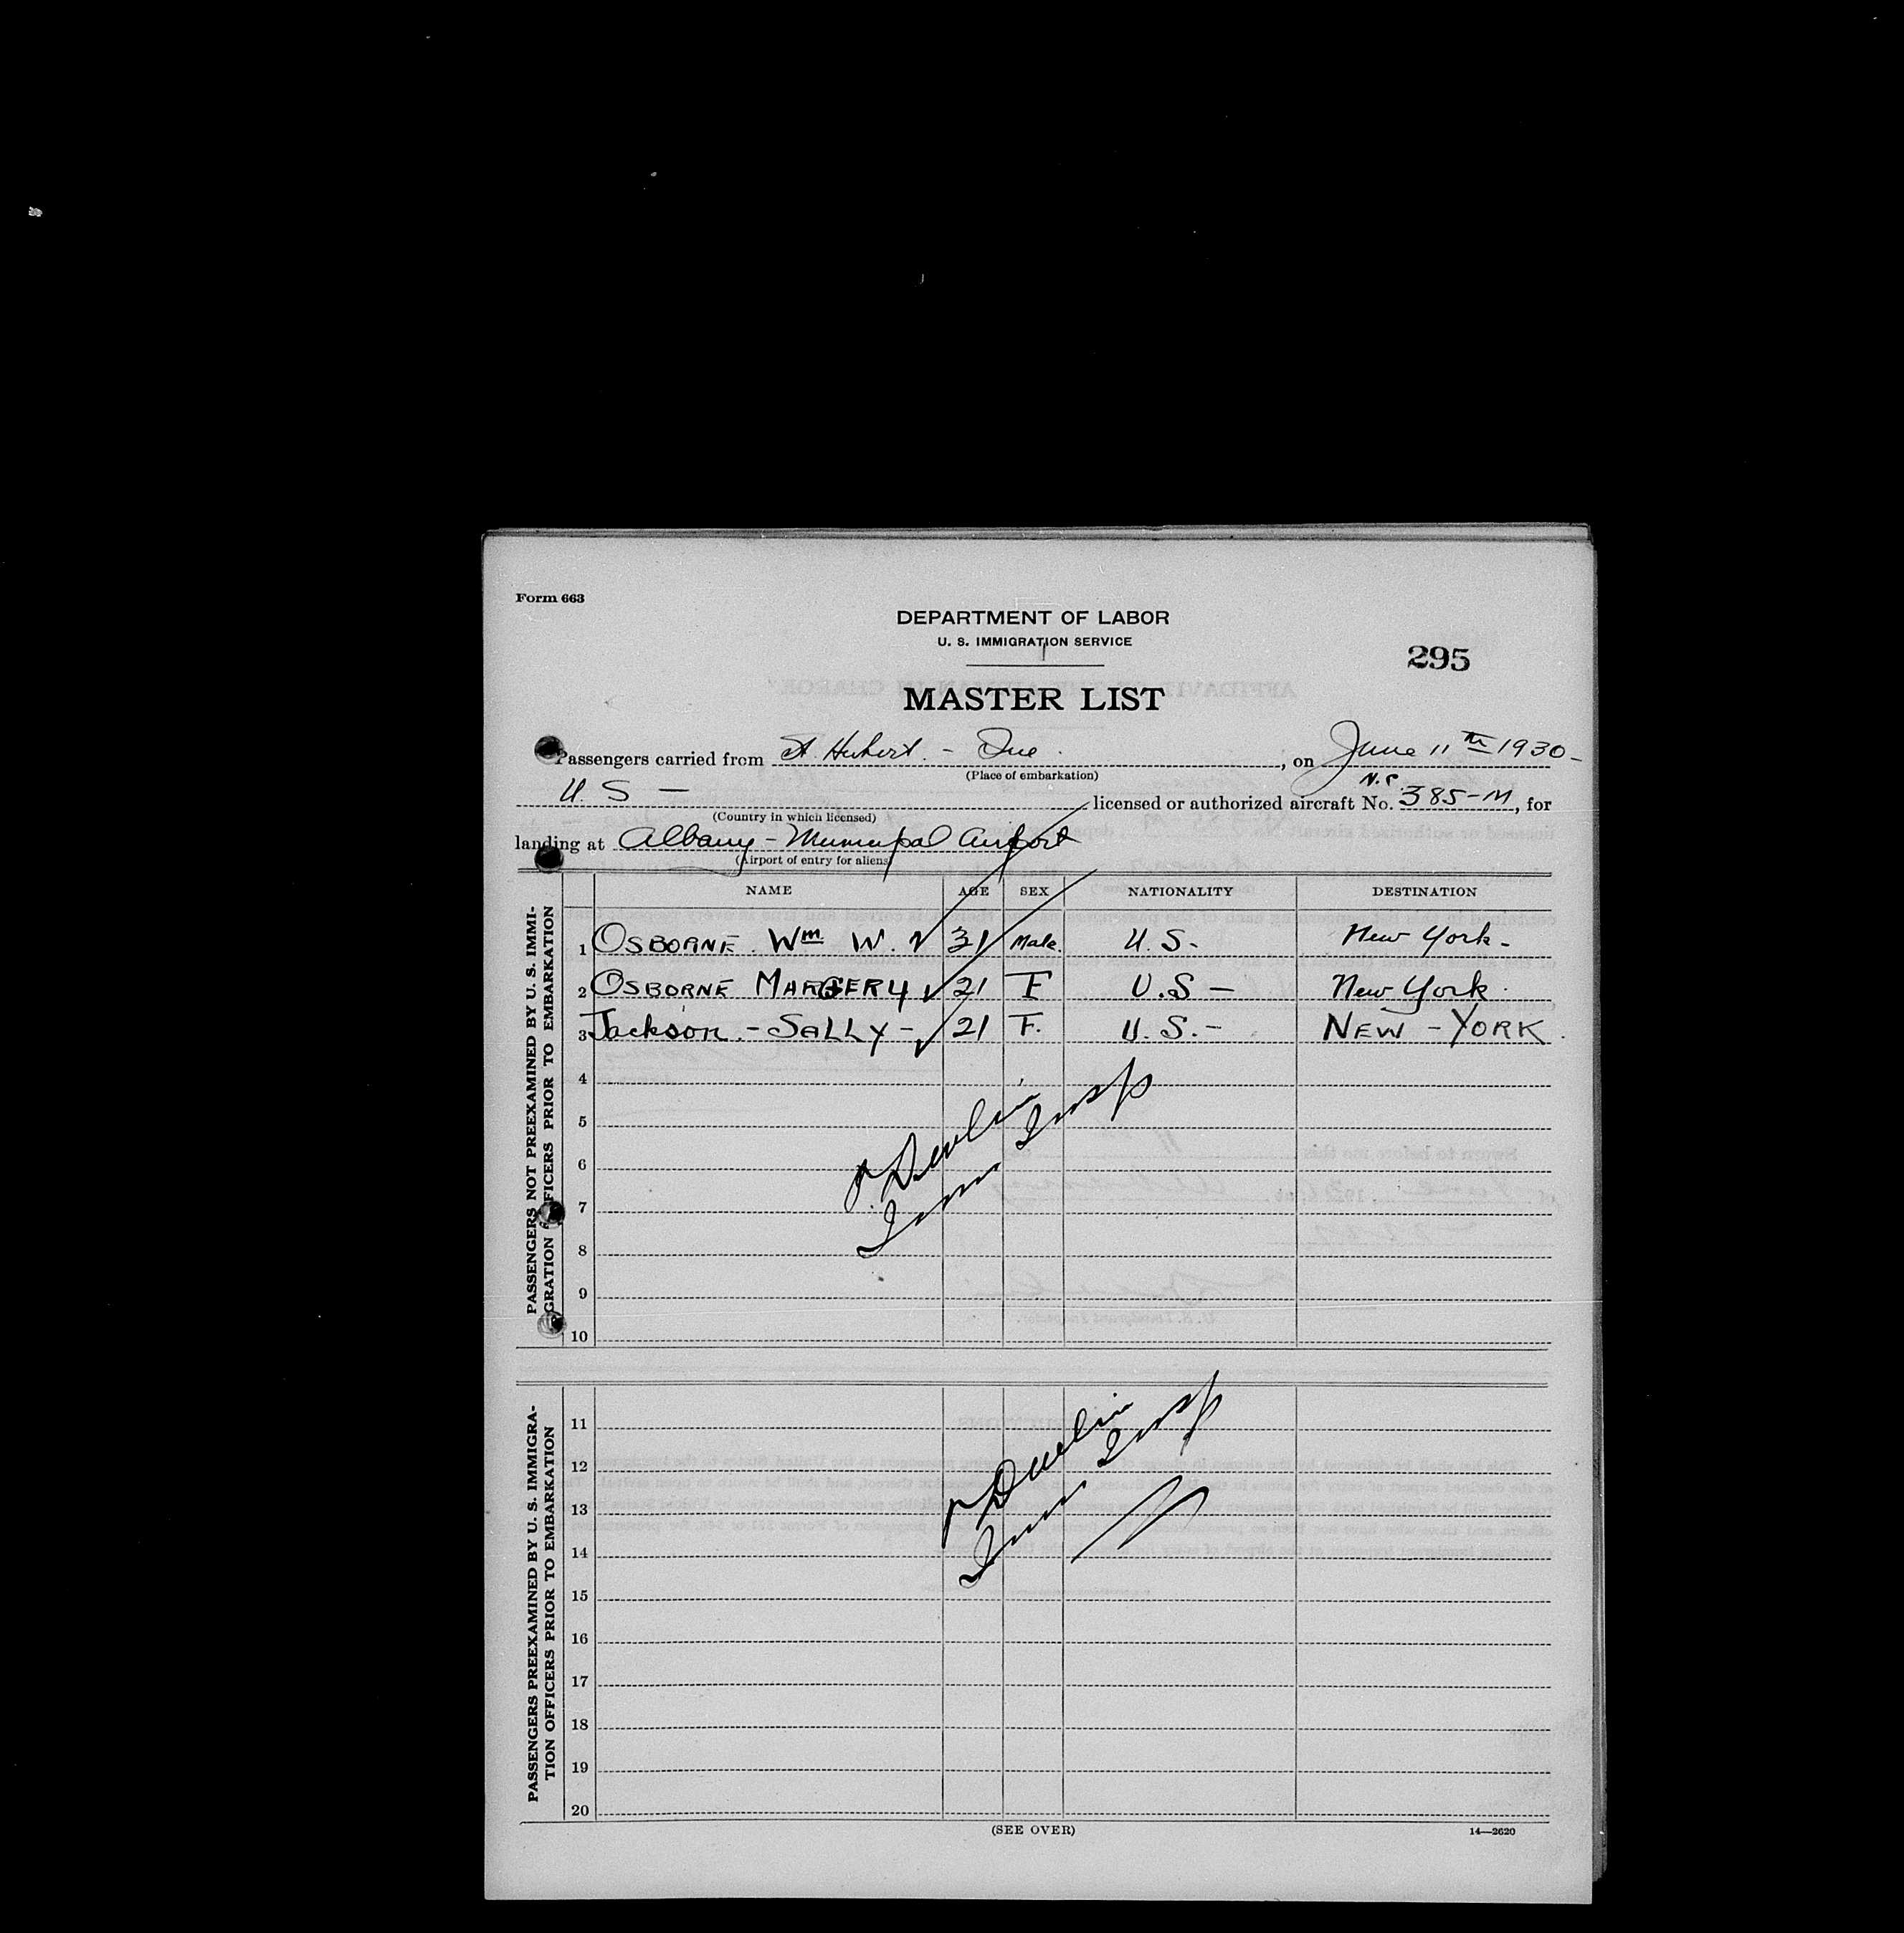 Form 663
DEPARTMENT OF LABOR
U. S. IMMIGRATION SERVICE
295
MASTER LIST
Passengers carried from St. Hubert. - Que. , on June 11th 1930-
(Place of embarkation)
U. S — licensed or authorized aircraft No. 385-M, for
(Country in which licensed)
landing at Albany - Municipal Airport
(Airport of entry for aliens)
NAME AGE SEX NATIONALITY DESTINATION
PASSENGERS NOT PREEXAMINED BY U. S. IMMI-
GRATION OFFICERS PRIOR TO EMBARKATION
1 OSBORNE. Wm. W. 31 Male. U. S- New York-
2 OSBORNE MARGERY 21 F U.S - New York.
3 Jackson. - SALLY - 21 F. U. S.- NEW - YORK.
4
5
6
7
8
9
10
Devlin
Imm Insp
PASSENGERS PREEXAMINED BY U. S. IMMIGRA-
TION OFFICERS PRIOR TO EMBARKATION
11
12
13
14
15
16
17
18
19
20
Devlin
Imm Insp
(SEE OVER)
14—2620